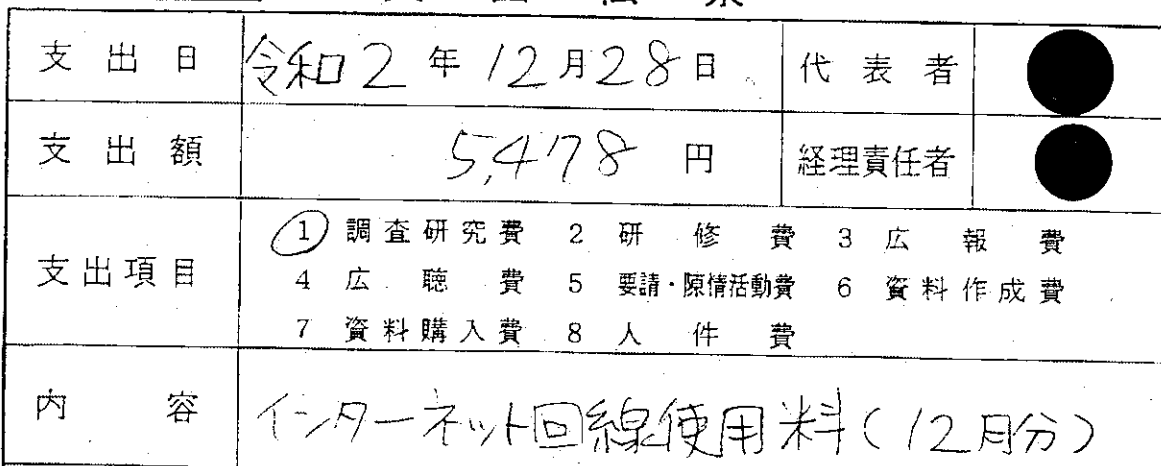 支出日 令和2年12月28日 代表者
支出額 5,478円 経理責任者
① 調査研究費 2 研修費 3 広報費
支出項目 4 広聴費 5 要請・陳情活動費 6 資料作成費
7 資料購入費 8 人件費
内容 インターネット回線使用料(12月分)